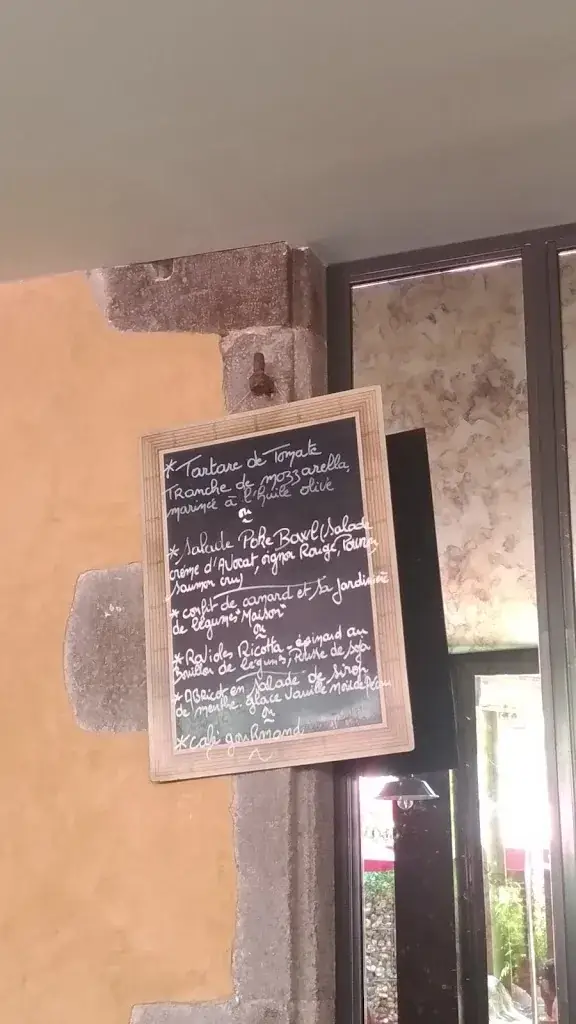 * Tartare de Tomate
Tranche de mozzarella,
mariné à l'huile olive
ou
* Salade Poke Bowl (Salade
crème d'Avocat, oignon Rouge,
saumon cru)
* confit de canard et sa Jardinière
de légumes "Maison"
ou
* Ravioles Ricotta - épinard au
Bouillon de légumes, Pousse de soja
* Abricot en salade de sirop
de menthe. glace Vanille Noix de Pécan
ou
* café gourmand